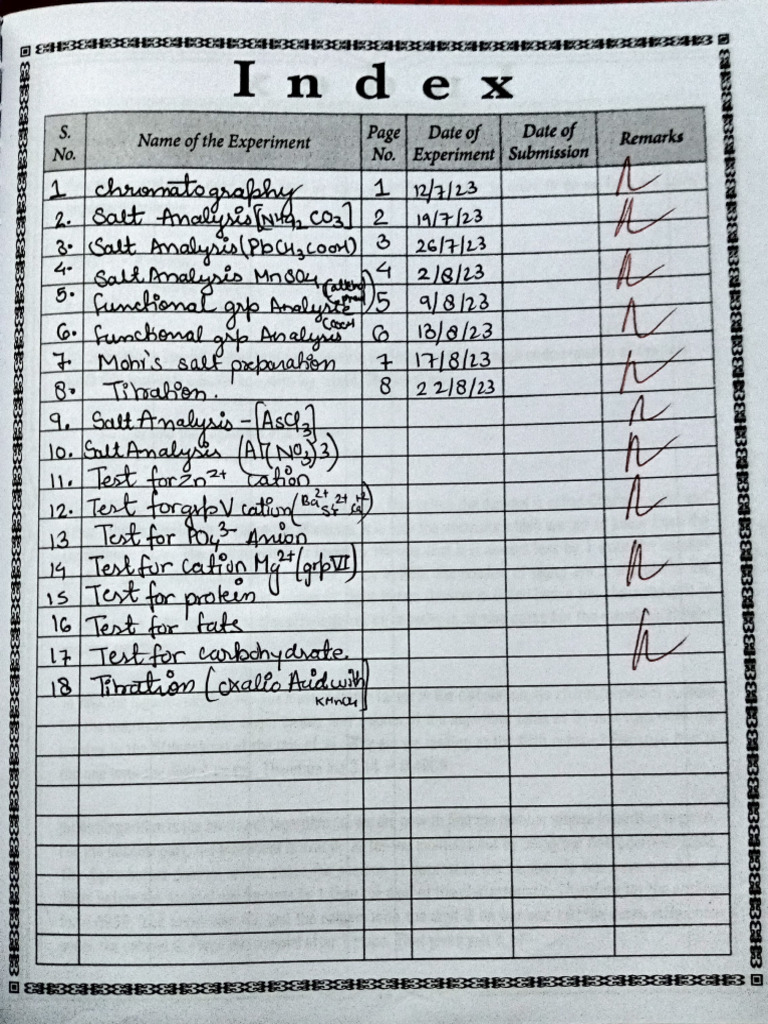 Index
S. No. Name of the Experiment Page No. Date of Experiment Date of Submission Remarks
1 chromatography 1 12/7/23
2. Salt Analysis [NH4)2 CO3] 2 19/7/23
3. (Salt Analysis (PbCH3COOH) 3 26/7/23
4. Salt Analysis MnSO4 4 2/8/23
5. functional grp Analysis 5 9/8/23
6. functional grp Analysis (COOH 6 13/8/23
7. Mohr's salt preparation 7 17/8/23
8. Titration. 8 22/8/23
9. Salt Analysis - [AsCl3]
10. Salt Analysis (Al(NO3)3)
11. Test for Zn2+ cation
12. Test for grp V cation (Ba2+ Sr2+ Ca+2)
13 Test for PO4 3- Anion
14 Test for cation Mg2+ (grp VI)
15 Test for protein
16 Test for fats
17 Test for carbohydrate.
18 Titration [oxalic Acid with KMnO4]